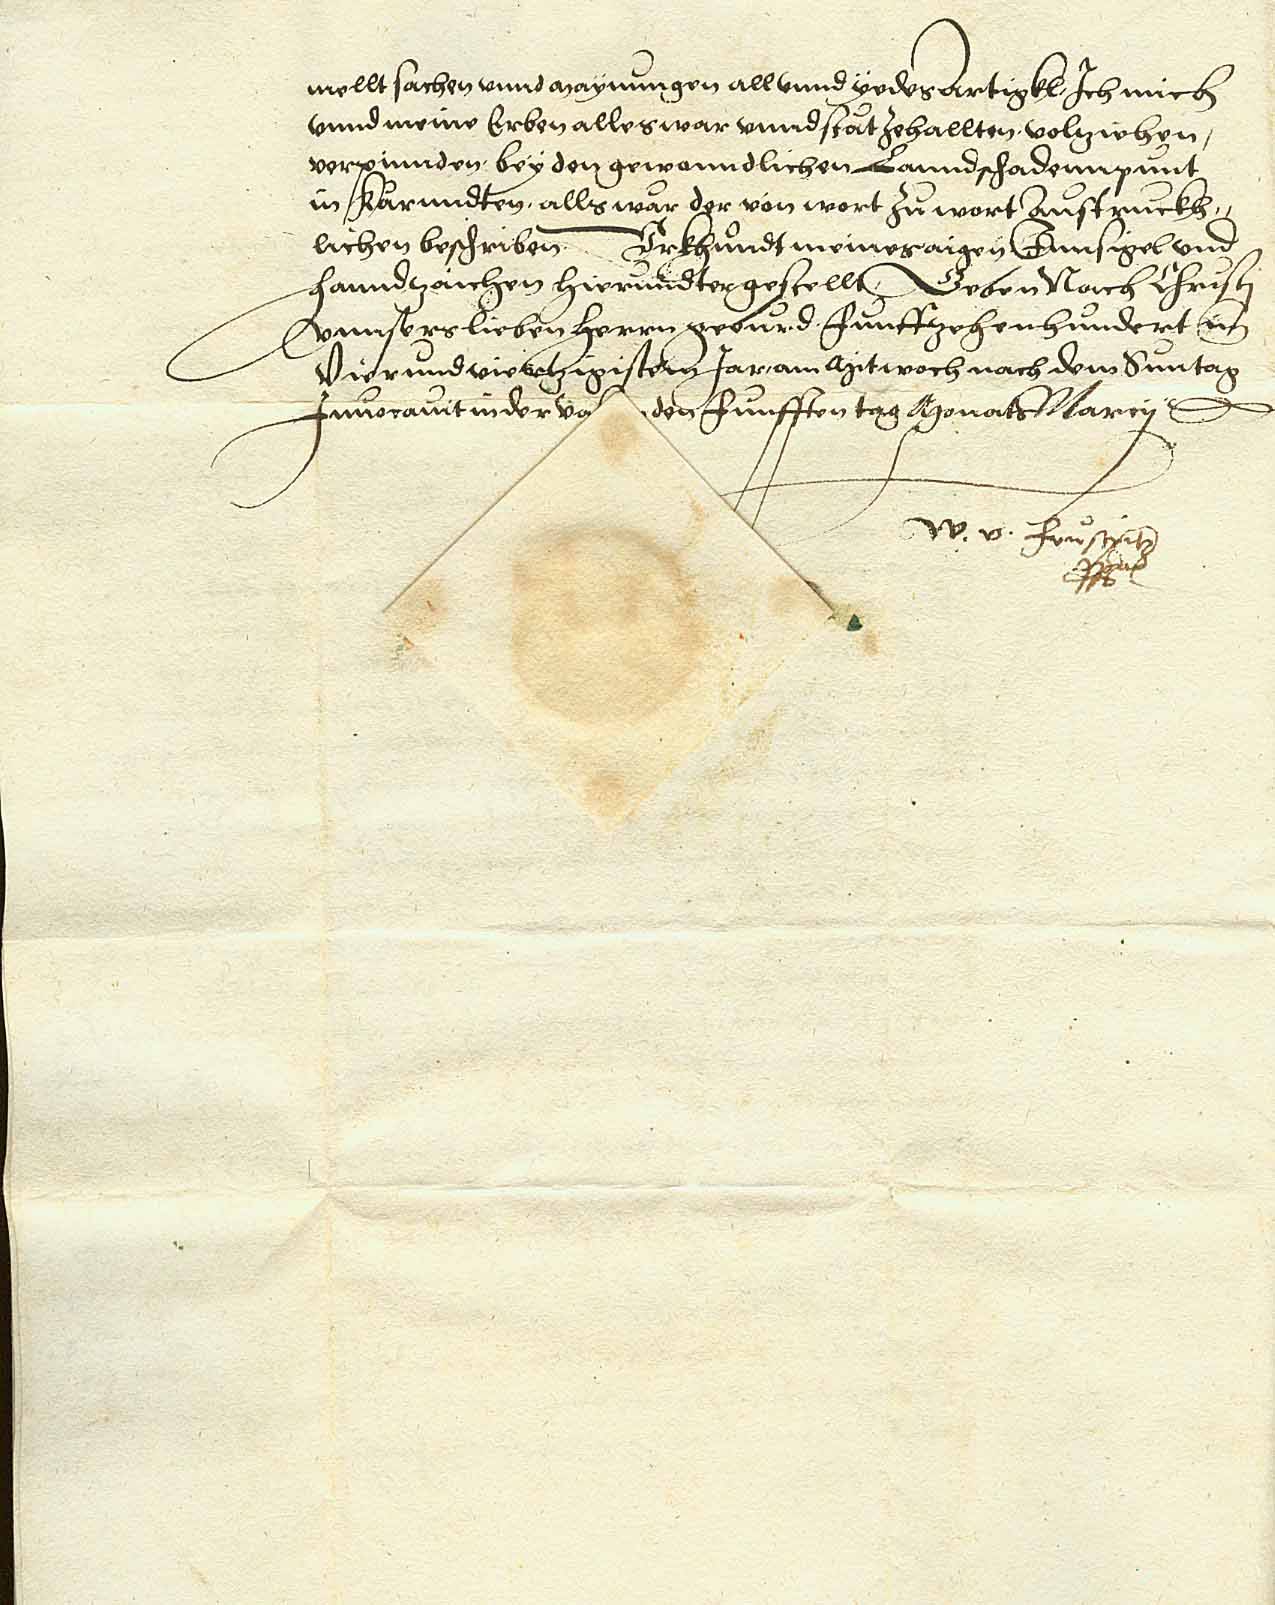 mellt sachen vnnd maynungen all vnnd yedes Artigkl, Ich mich
vnnd meine Erben alles war vnnd stät zehallten, volziehen,
verpinnden, bey den gewonndlichen Lanndschadennpunt
in Kärnndten, alls wär der von wort zu wort Austruckh„
lichen beschriben. Vrkhundt meines aigen Innsigel vnd
hanndzaichen hierundter gestellt, Geben Nach Christj
vnnsers lieben Herrn geburd, Funffzehenhundert
Vierundviertzigisten Jar, am Mitwoch nach dem Suntag
Inuocauit in der den Funfften tag Monats Marcij
W. v.